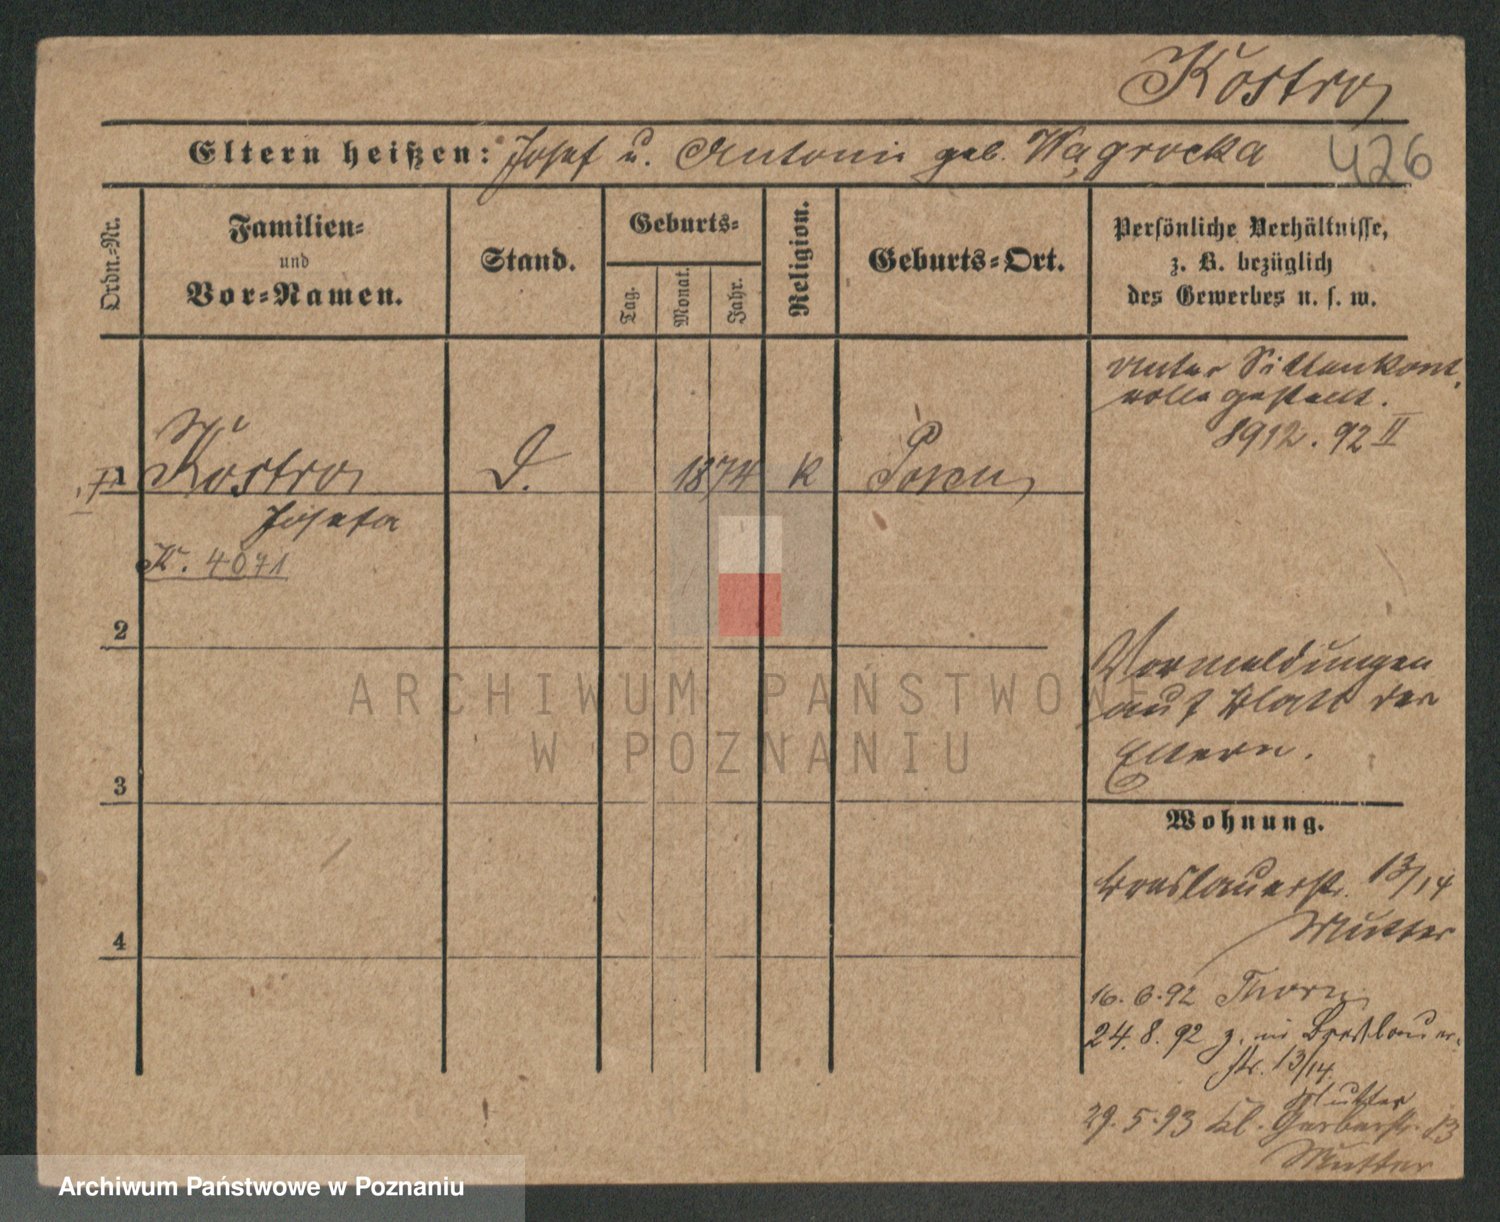 Kostro
Eltern heißen: Josef u. Antonie geb. Wągrocka 426
Ordn.-Nr.
Familien-
und
Vor-Namen.
Stand.
Geburts-
Tag.
Monat.
Jahr.
Religion.
Geburts-Ort.
Persönliche Verhältnisse,
z. B. bezüglich
des Gewerbes u. s. w.
unter Sittenkont
rolle gestellt.
8912. 92 II
1 Kostro D. 1874 K Posen
Josefa
K. 4071
2
Vormeldungen
auf Blatt der
Eltern.
3
Wohnung.
Breslauerstr. 13/14
Mutter
4
16. 6. 92 Thorn
24. 8. 92 z. Breslauer
str. 13/14
Mutter
29. 5. 93 Kl. Gerberstr.
Mutter
ARCHIWUM PAŃSTWOWE
W POZNANIU
Archiwum Państwowe w Poznaniu